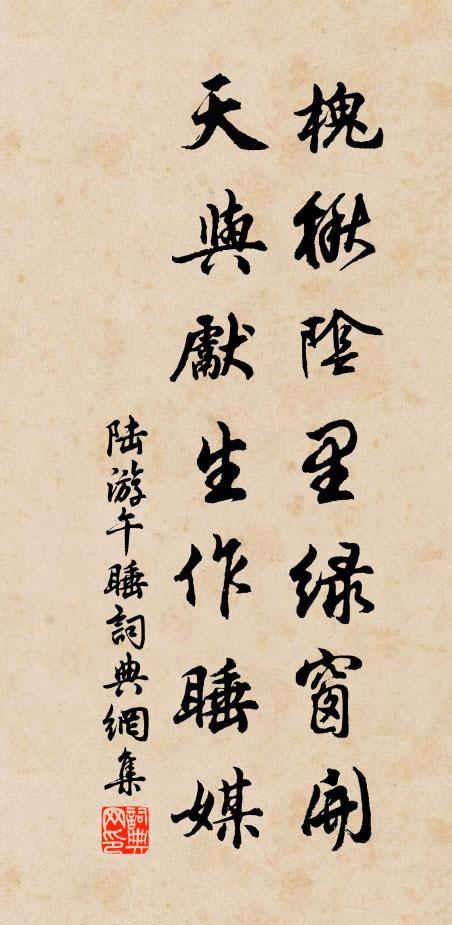 槐楸陰里緑窗開
天與獻生作睡媒
陸游午睡詞典網集
詞典网印